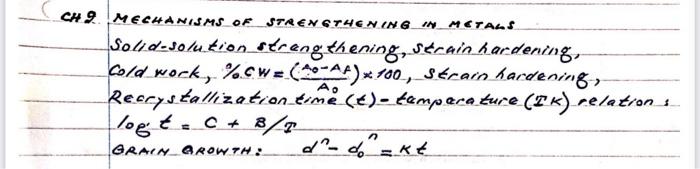 CH 9 MECHANISMS OF STRENGTHENING IN METALS
Solid-solution strengthening, strain hardening,
Cold work, %CW = (A0-Af / A0) x 100, strain hardening,
Recrystallization time (t) - temperature (T K) relation :
log t = C + B/T
GRAIN GROWTH: dⁿ - d₀ⁿ = Kt